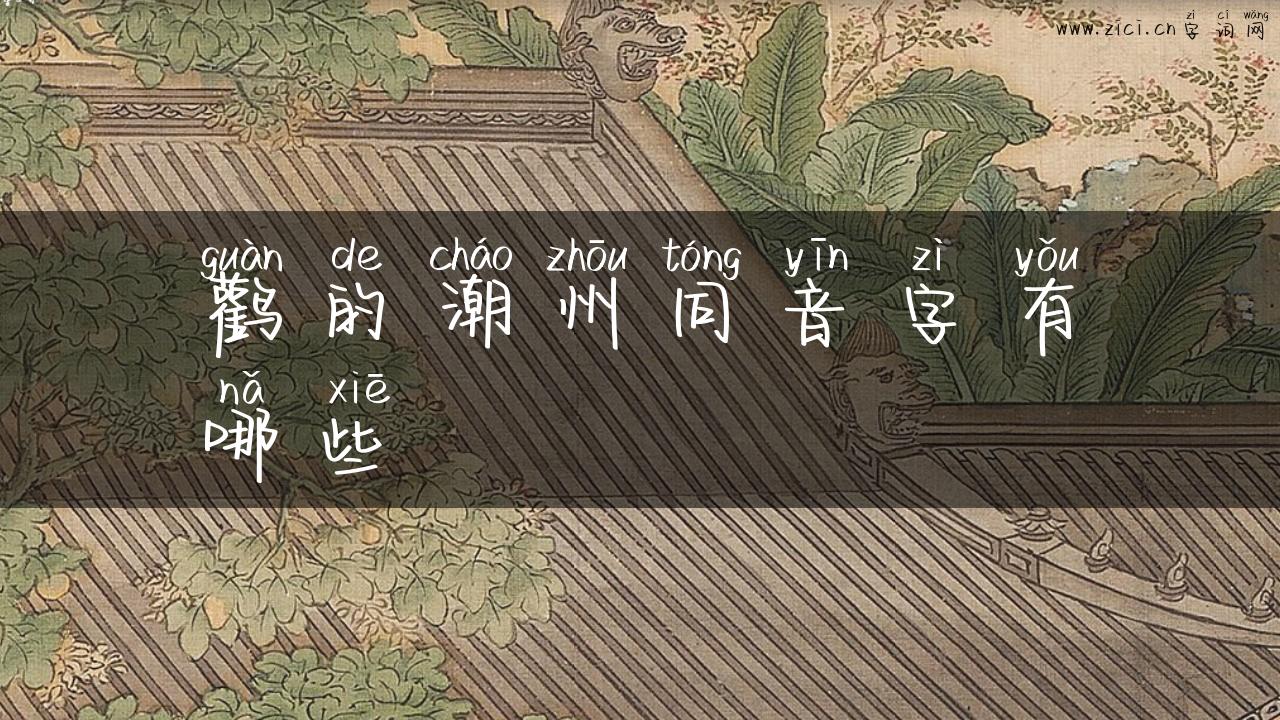 zì cí wǎng
www.zici.cn 字词网
guàn de cháo zhōu tóng yīn zì yǒu
鹳的潮州同音字有
nǎ xiē
哪些